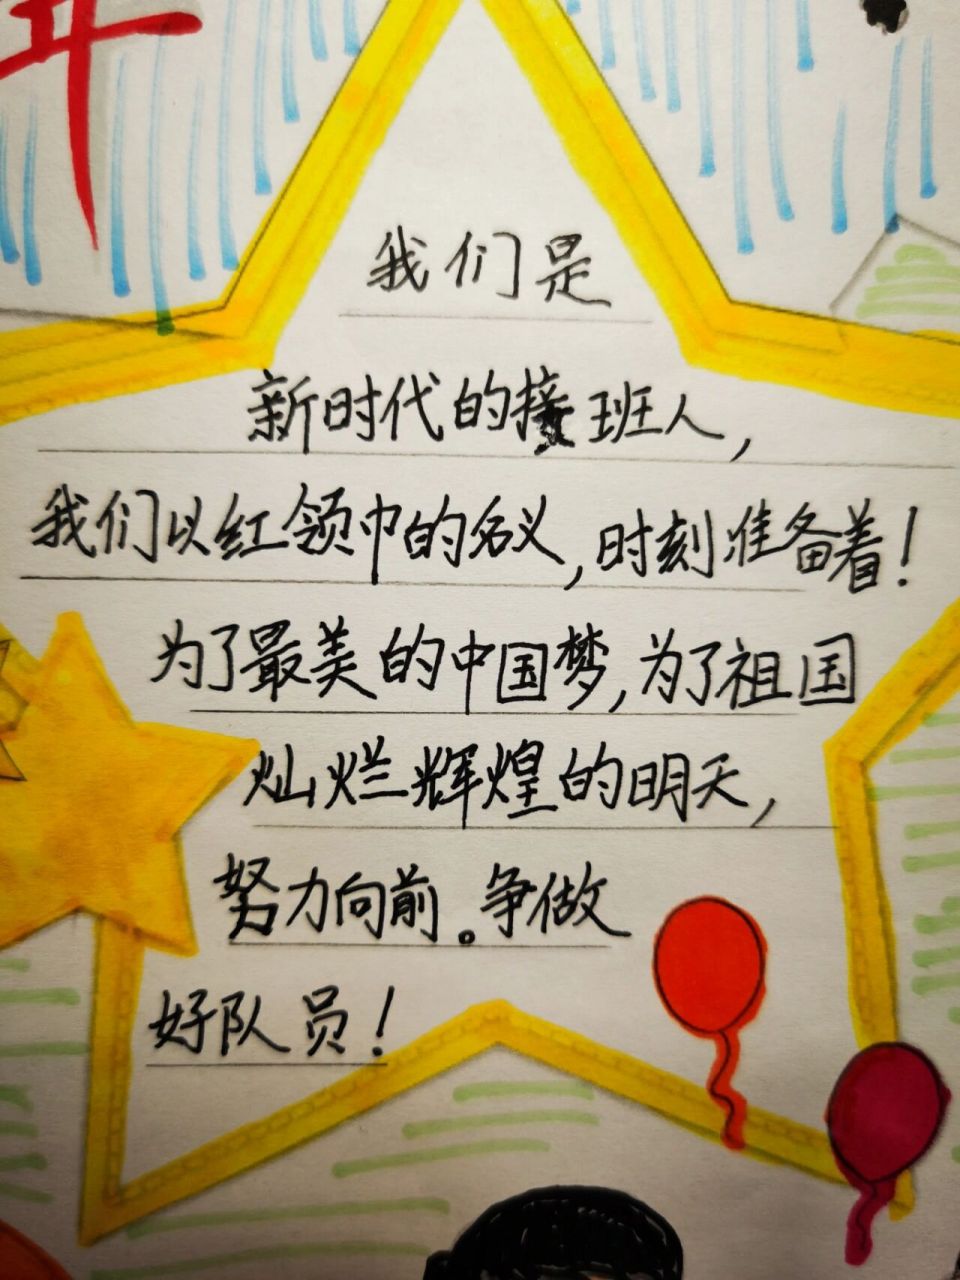 我们是
新时代的接班人,
我们以红领巾的名义,时刻准备着!
为了最美的中国梦,为了祖国
灿烂辉煌的明天,
努力向前。争做
好队员!